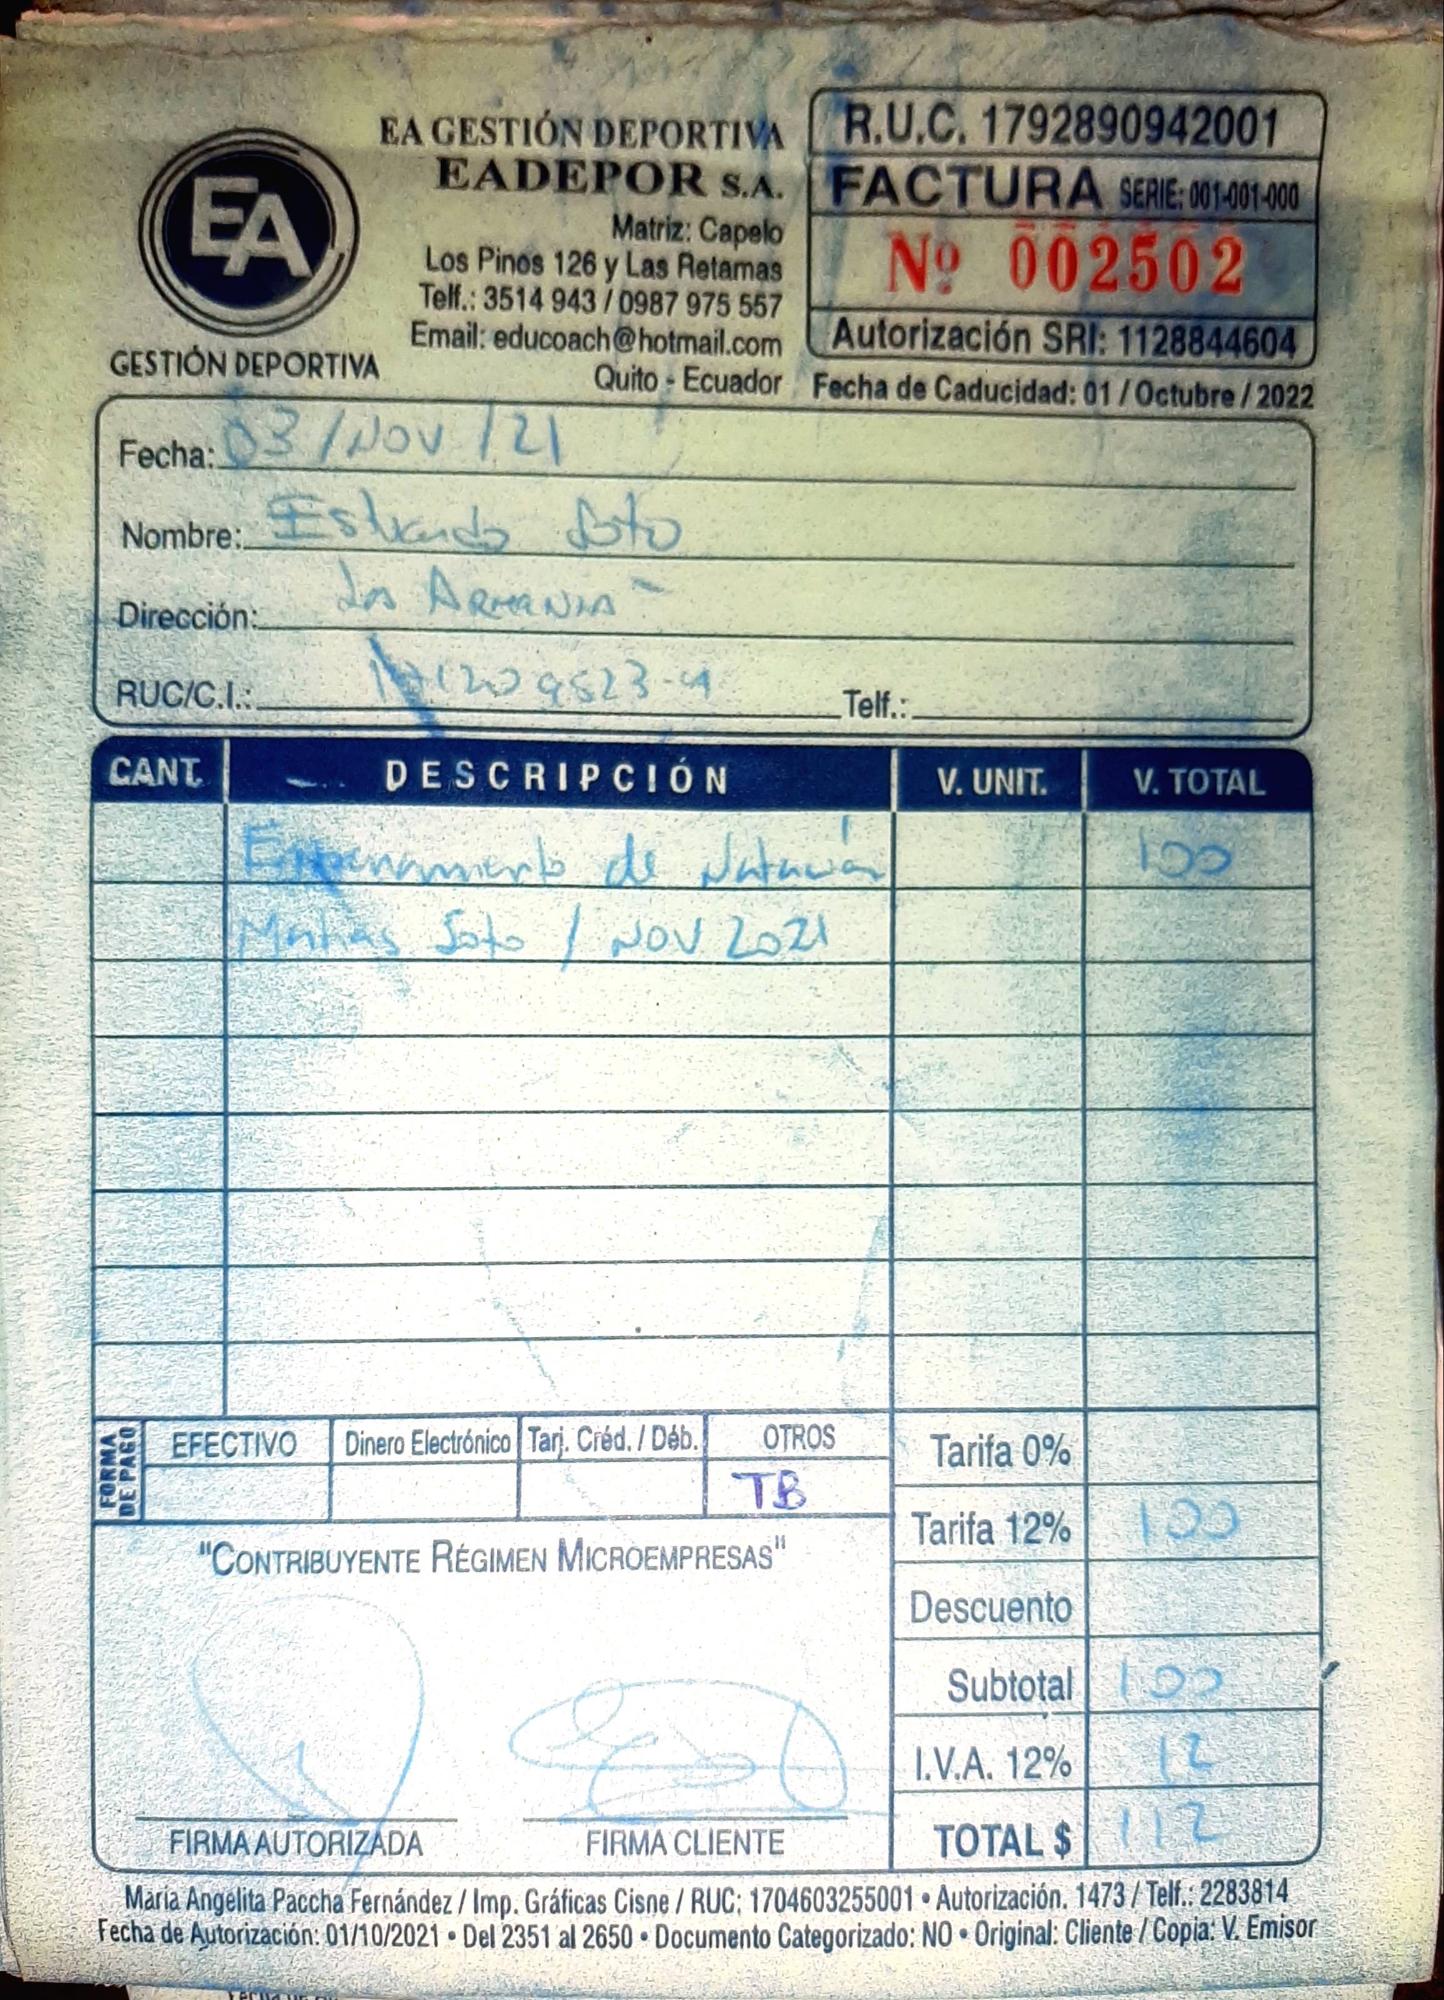 EA
GESTIÓN DEPORTIVA
EA GESTIÓN DEPORTIVA
EADEPOR S.A.
Matriz: Capelo
Los Pinos 126 y Las Retamas
Telf.: 3514 943 / 0987 975 557
Email: educoach@hotmail.com
Quito - Ecuador
R.U.C. 1792890942001
FACTURA SERIE: 001-001-000
Nº 002502
Autorización SRI: 1128844604
Fecha de Caducidad: 01 / Octubre / 2022
Fecha: 03 / NOV / 21
Nombre: Soto
Dirección: La Armenia
RUC/C.I.: Telf.:
CANT. DESCRIPCIÓN V. UNIT. V. TOTAL
Entrenamiento de Natación 100
Matias Soto / NOV 2021
FORMA DE PAGO
EFECTIVO Dinero Electrónico Tarj. Créd. / Déb. OTROS
TB
Tarifa 0%
Tarifa 12% 100
Descuento
Subtotal 100
I.V.A. 12% 12
TOTAL $ 112
"CONTRIBUYENTE RÉGIMEN MICROEMPRESAS"
FIRMA AUTORIZADA FIRMA CLIENTE
María Angelita Paccha Fernández / Imp. Gráficas Cisne / RUC: 1704603255001 • Autorización. 1473 / Telf.: 2283814
Fecha de Autorización: 01/10/2021 • Del 2351 al 2650 • Documento Categorizado: NO • Original: Cliente / Copia: V. Emisor